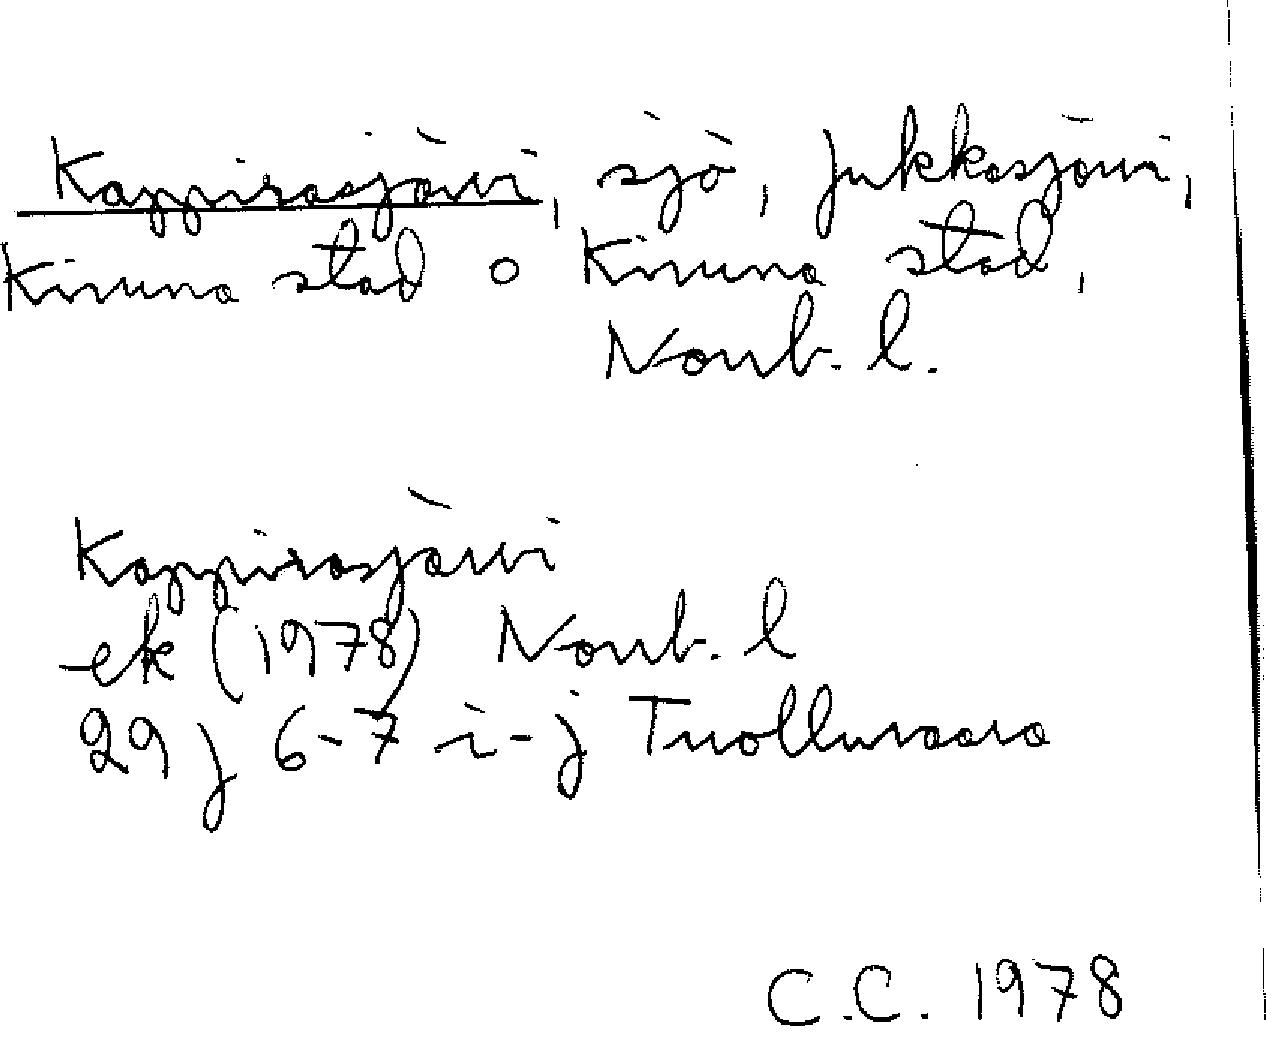 Kappirasjärvi, sjö, Jukkasjärvi,
Kiruna stad o Kiruna stad,
Norrb. l.
Kappirasjärvi
ek (1978) Norrb. l
29 J 6-7 i-j Tuolluvaara
C.C. 1978